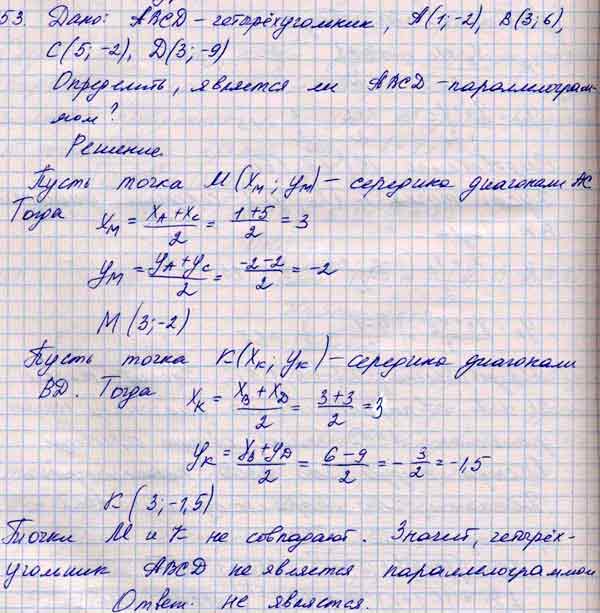 53. Дано: ABCD – четырёхугольник, A(1; -2), B(3; 6),
C(5; -2), D(3; -9)
Определить, является ли ABCD – параллелограм-
мом?
Решение.
Пусть точка M(x_M; y_M) – середина диагонали AC
Тогда x_M = (x_A + x_C)/2 = (1+5)/2 = 3
y_M = (y_A + y_C)/2 = (-2-2)/2 = -2
M(3; -2)
Пусть точка K(x_K; y_K) – середина диагонали
BD. Тогда x_K = (x_B + x_D)/2 = (3+3)/2 = 3
y_K = (y_B + y_D)/2 = (6-9)/2 = -3/2 = -1,5
K(3; -1,5)
Точки M и K не совпадают. Значит, четырёх-
угольник ABCD не является параллелограммом
Ответ: не является.